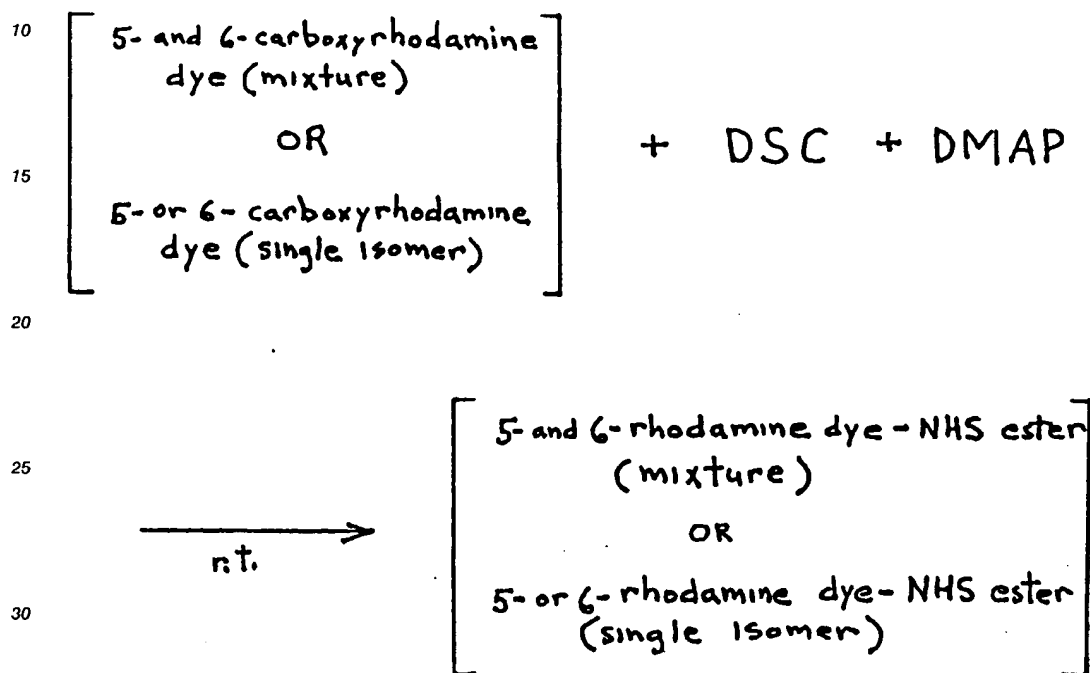 10
5- and 6-carboxyrhodamine
dye (mixture)
OR
15
5- or 6- carboxyrhodamine
dye (single isomer)
+ DSC + DMAP
20
25
r.t.
5- and 6-rhodamine dye-NHS ester
(mixture)
OR
30
5- or 6-rhodamine dye-NHS ester
(single isomer)